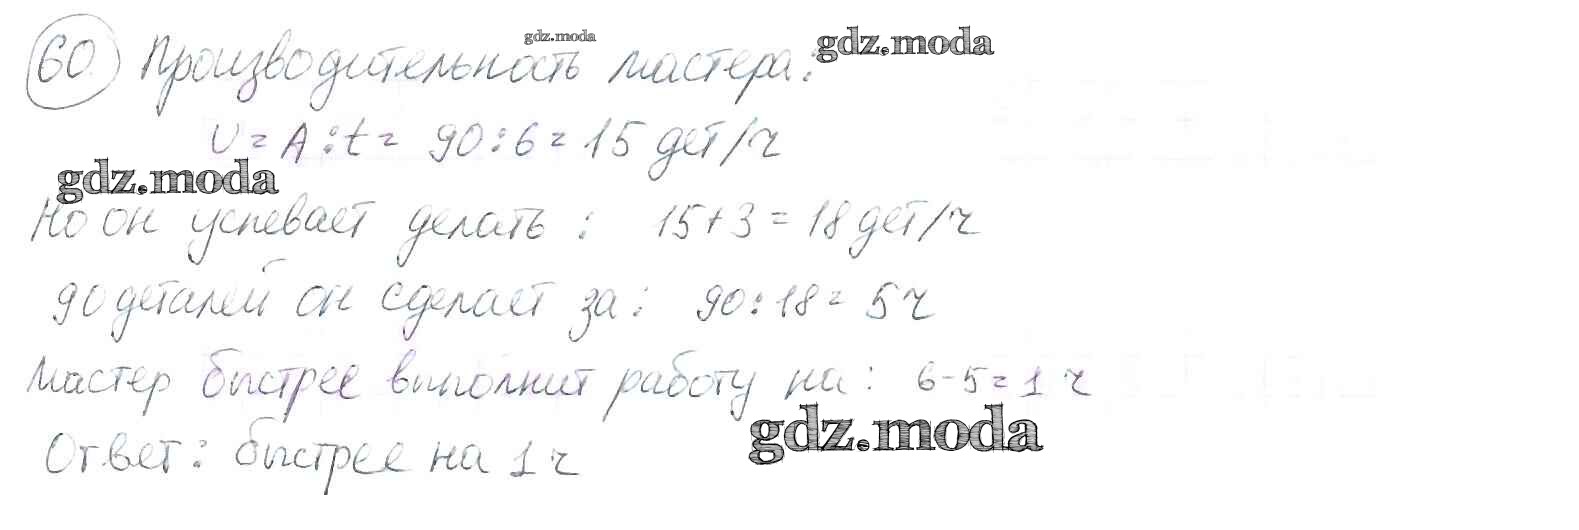 60. Производительность мастера:
gdz.moda
gdz.moda
υ = A : t = 90 : 6 = 15 дет/ч
gdz.moda
Но он успевает делать : 15 + 3 = 18 дет/ч
90 деталей он сделает за : 90 : 18 = 5 ч
Мастер быстрее выполнит работу на : 6 - 5 = 1 ч
gdz.moda
Ответ : быстрее на 1 ч